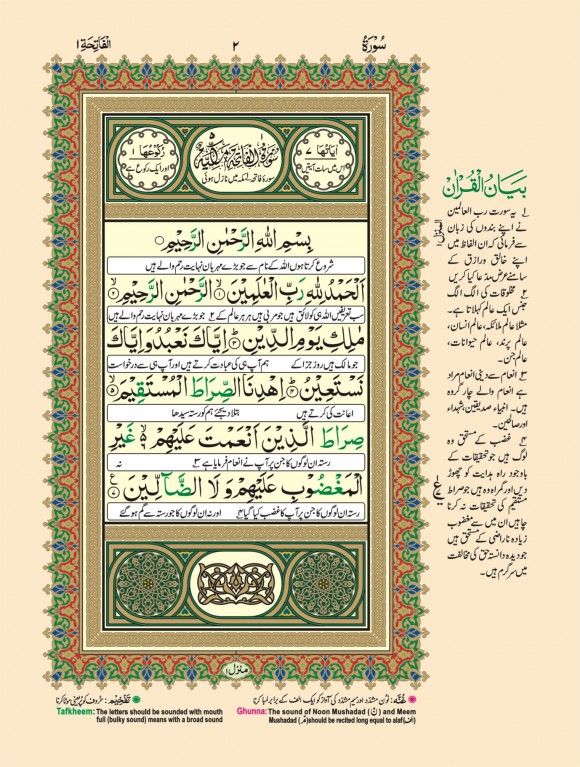 سُوْرَةُ
٢
اَلْفَاتِحَة ١
اٰيَاتُهَا ٧
اس میں سات آیتیں
سُوْرَةُ الْفَاتِحَةِ مَكِّيَّةٌ ٥
سورۂ فاتحہ مکہ میں نازل ہوئی
رُكُوْعُهَا ١
اور ایک رکوع ہے
بِسْمِ اللّٰهِ الرَّحْمٰنِ الرَّحِيْمِ
شروع کرتا ہوں اللہ کے نام سے جو بڑے مہربان نہایت رحم والے ہیں
اَلْحَمْدُ لِلّٰهِ رَبِّ الْعٰلَمِيْنَ ۙ١ الرَّحْمٰنِ الرَّحِيْمِ ۙ٢
سب تعریفیں اللہ ہی کو لائق ہیں جو مربی ہیں ہر ہر عالم کے ٢ جو بڑے مہربان نہایت رحم والے ہیں
مٰلِكِ يَوْمِ الدِّيْنِ ۗ٣ اِيَّاكَ نَعْبُدُ وَاِيَّاكَ
جو مالک ہیں روز جزا کے ہم آپ ہی کی عبادت کرتے ہیں اور آپ ہی سے درخواست
نَسْتَعِيْنُ ۗ٤ اِهْدِنَا الصِّرَاطَ الْمُسْتَقِيْمَ ۙ٥
اعانت کی کرتے ہیں بتلا دیجئے ہم کو رستہ سیدھا
صِرَاطَ الَّذِيْنَ اَنْعَمْتَ عَلَيْهِمْ ۙ٦ غَيْرِ
رستہ ان لوگوں کا جن پر آپ نے انعام فرمایا ہے ٣ نہ
الْمَغْضُوْبِ عَلَيْهِمْ وَلَا الضَّآلِّيْنَ ۧ٧
رستہ ان لوگوں کا جن پر آپ کا غضب کیا گیا ٤ اور نہ ان لوگوں کا جو رستہ سے گم ہو گئے
منزل ١
بَيَانُ الْقُرْاٰن
١ یہ سورت رب العالمین
نے اپنے بندوں کی زبان
سے فرمائی کہ ان الفاظ میں
اپنے خالق ورازق کے
سامنے عرض مدعا کیا کریں
٢ مخلوقات کی الگ الگ
جنس ایک عالم کہلاتا ہے۔
مثلا عالم ملائکہ، عالم انسان،
عالم پرند، عالم حیوانات،
عالم جن۔
٣ انعام سے دینی انعام مراد
ہے انعام والے چار گروہ
ہیں۔ انبیاء صدیقین شہداء
اور صالحین۔
٤ غضب کے مستحق وہ
لوگ ہیں جو تحقیقات کے
باوجود راہ ہدایت کو چھوڑ
دیں اور گمراہ وہ ہیں جو صراط
مستقیم کی تحقیقات نہ کرنا
چاہیں ان میں سے مغضوب
زیادہ ناراضی کے مستحق ہیں
جو دیدہ دانستہ حق کی مخالفت
میں سرگرم ہیں۔
غُنَّه: نون مشدّد اور میم مشدّد کی آواز کو ایک الف کے برابر لمبا کرنا
Ghunna: The sound of Noon Mushadad (نّ) and Meem
Mushadad (مّ) should be recited long equal to alaf (الف)
تَفْخِيْم: حروف کو پُر یعنی موٹا کرنا
Tafkheem: The letters should be sounded with mouth
full (bulky sound) means with a broad sound